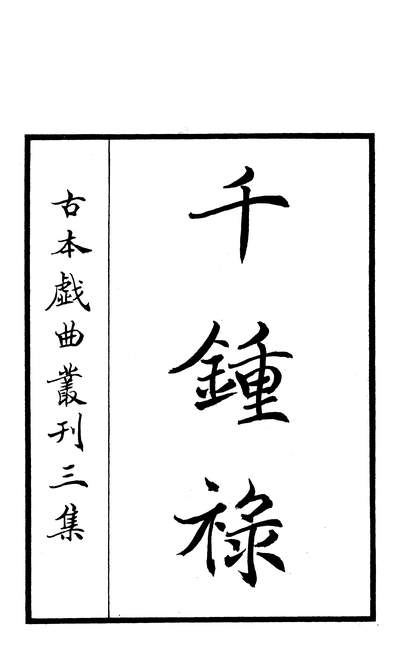 千鍾祿
古本戯曲叢刊三集